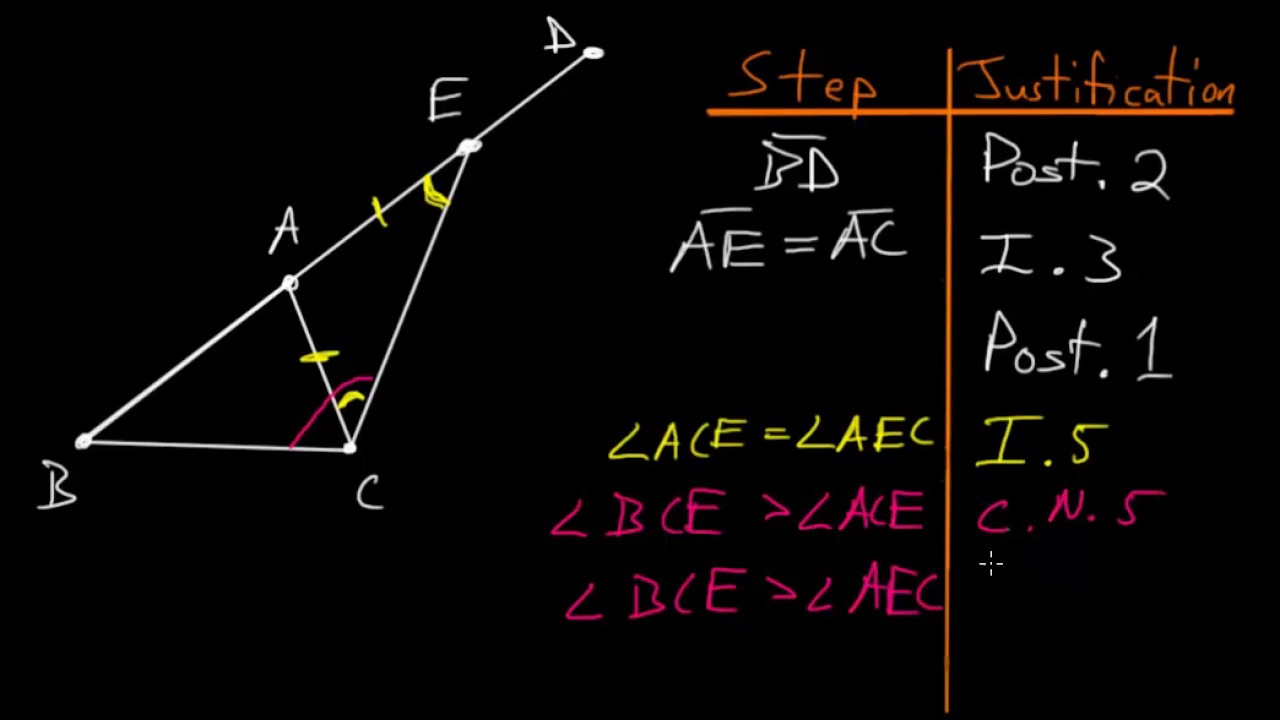 D
E
A
B
C
Step Justification
B͞D Post. 2
A͞E = A͞C I. 3
Post. 1
∠ACE = ∠AEC I. 5
∠BCE > ∠ACE C.N. 5
∠BCE > ∠AEC